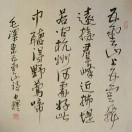 五雲山上五雲飛
遠接群峰近拂堤
若問杭州何處好此
中聽得野鶯啼
毛澤東